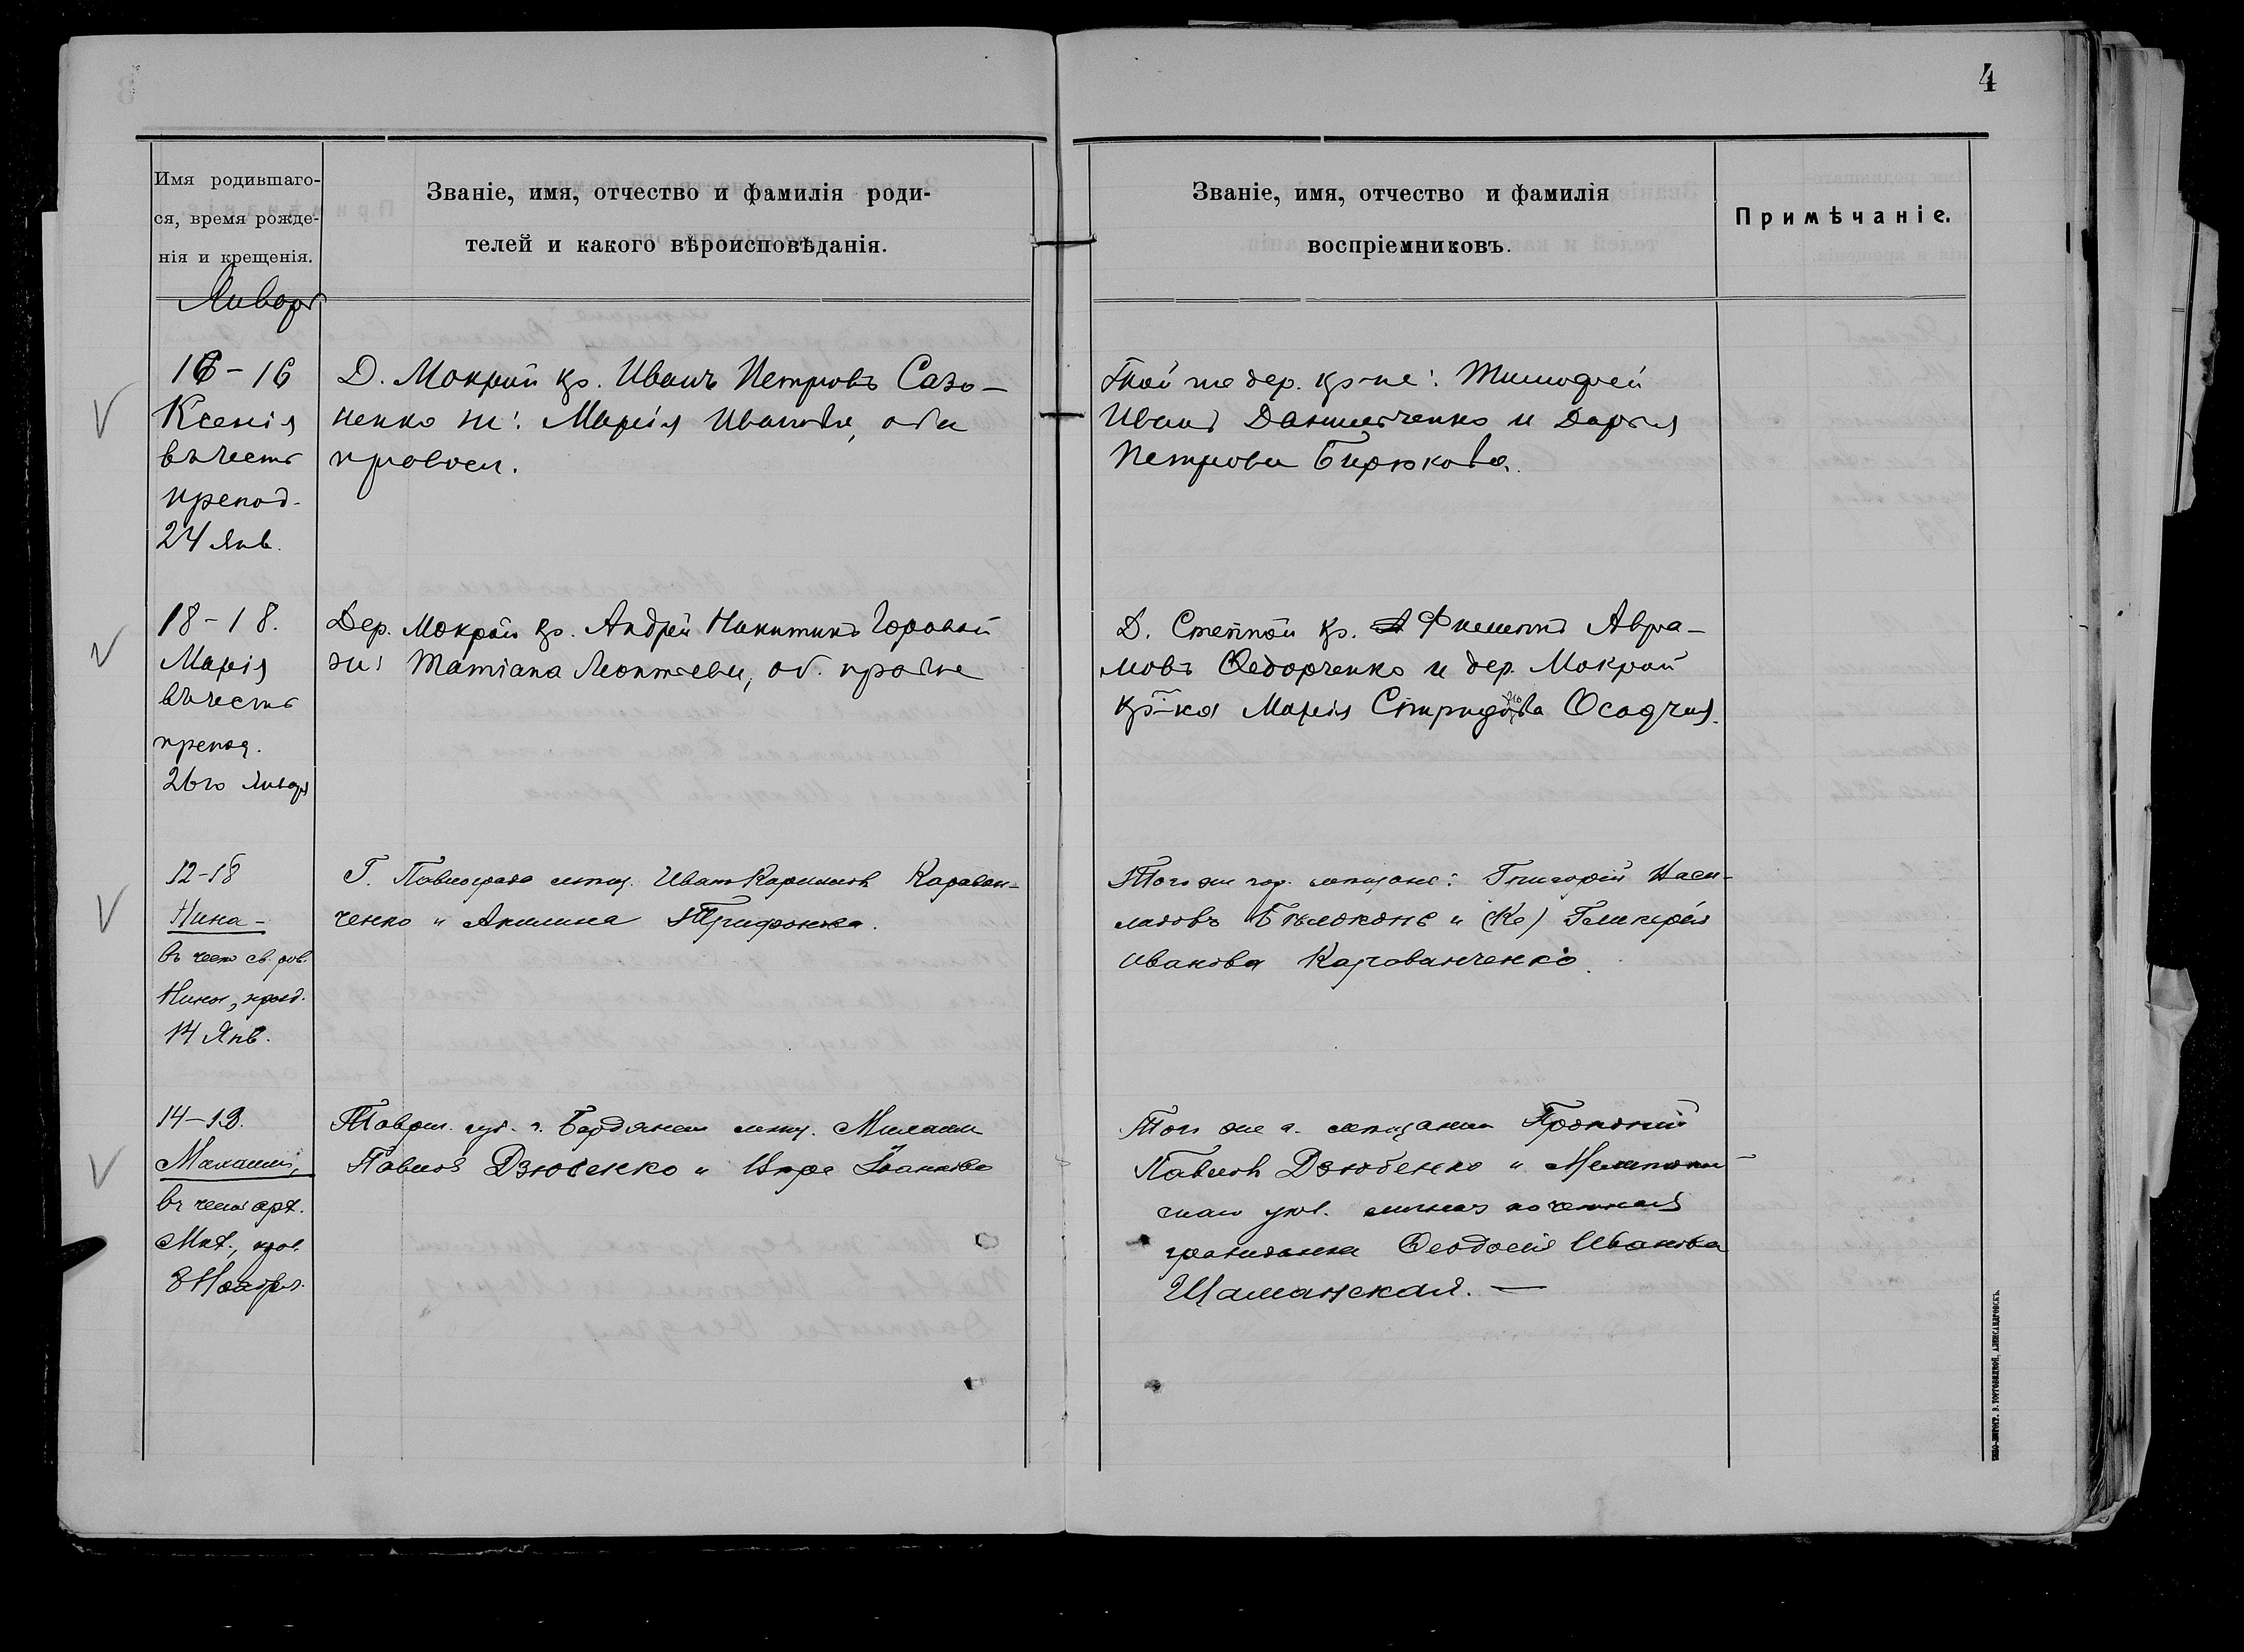 4
Имя родившаго-
ся, время рожде-
нія и крещенія.
Званіе, имя, отчество и фамилія роди-
телей и какого вѣроисповѣданія.
Званіе, имя, отчество и фамилія
воспріемниковъ.
Примѣчаніе.
Январь
16-16
Ксенія
въ честь
препод.
24 Янв.
Д. Мокрой кр. Иванъ Петровъ Сазо-
ненко ж: Марія Иванова, оба
правосл.
Той же дер. кр-не: Тимофей
Иванъ Данильченко и Дарья
Петрова Бирюкова.
18-18.
Марія
въ честь
препод.
26го Января
Дер. Мокрой кр. Андрей Никитинъ Горовой
ж: Татіана Леонтьева, об. прав-не
Д. Степной кр. Филиппъ Авра-
мовъ Федорченко и дер. Мокрой
кр-ка Марія Спиридонова Осадчая.
12-18
Нина -
въ честь св. рав.
Нины, празд.
14 Янв.
Г. Павлограда мѣщ. Иванъ Карповъ Караван-
ченко и Акилина Трифонова.
Того же гор. мѣщане: Григорій
Бѣлоконь и (Ке) Гликерія
Иванова Караванченко.
14-19.
Михаилъ,
въ честь арх.
Мих., праз.
8 Ноября.
Таврич. губ. г. Бердянска мѣщ. Михаилъ
Павловъ Дзюбенко и Іоаннова
Того же г. мѣщанинъ Прокопій
Павловъ Дзюбенко и Мелитополь-
скаго уѣз. личная почетная
гражданка Феодосія Иванова
Шаманская. —
ТИПО-ЛИТОГР. В. ТОРГОВИЦКОЙ, АЛЕКСАНДРОВСКЪ.